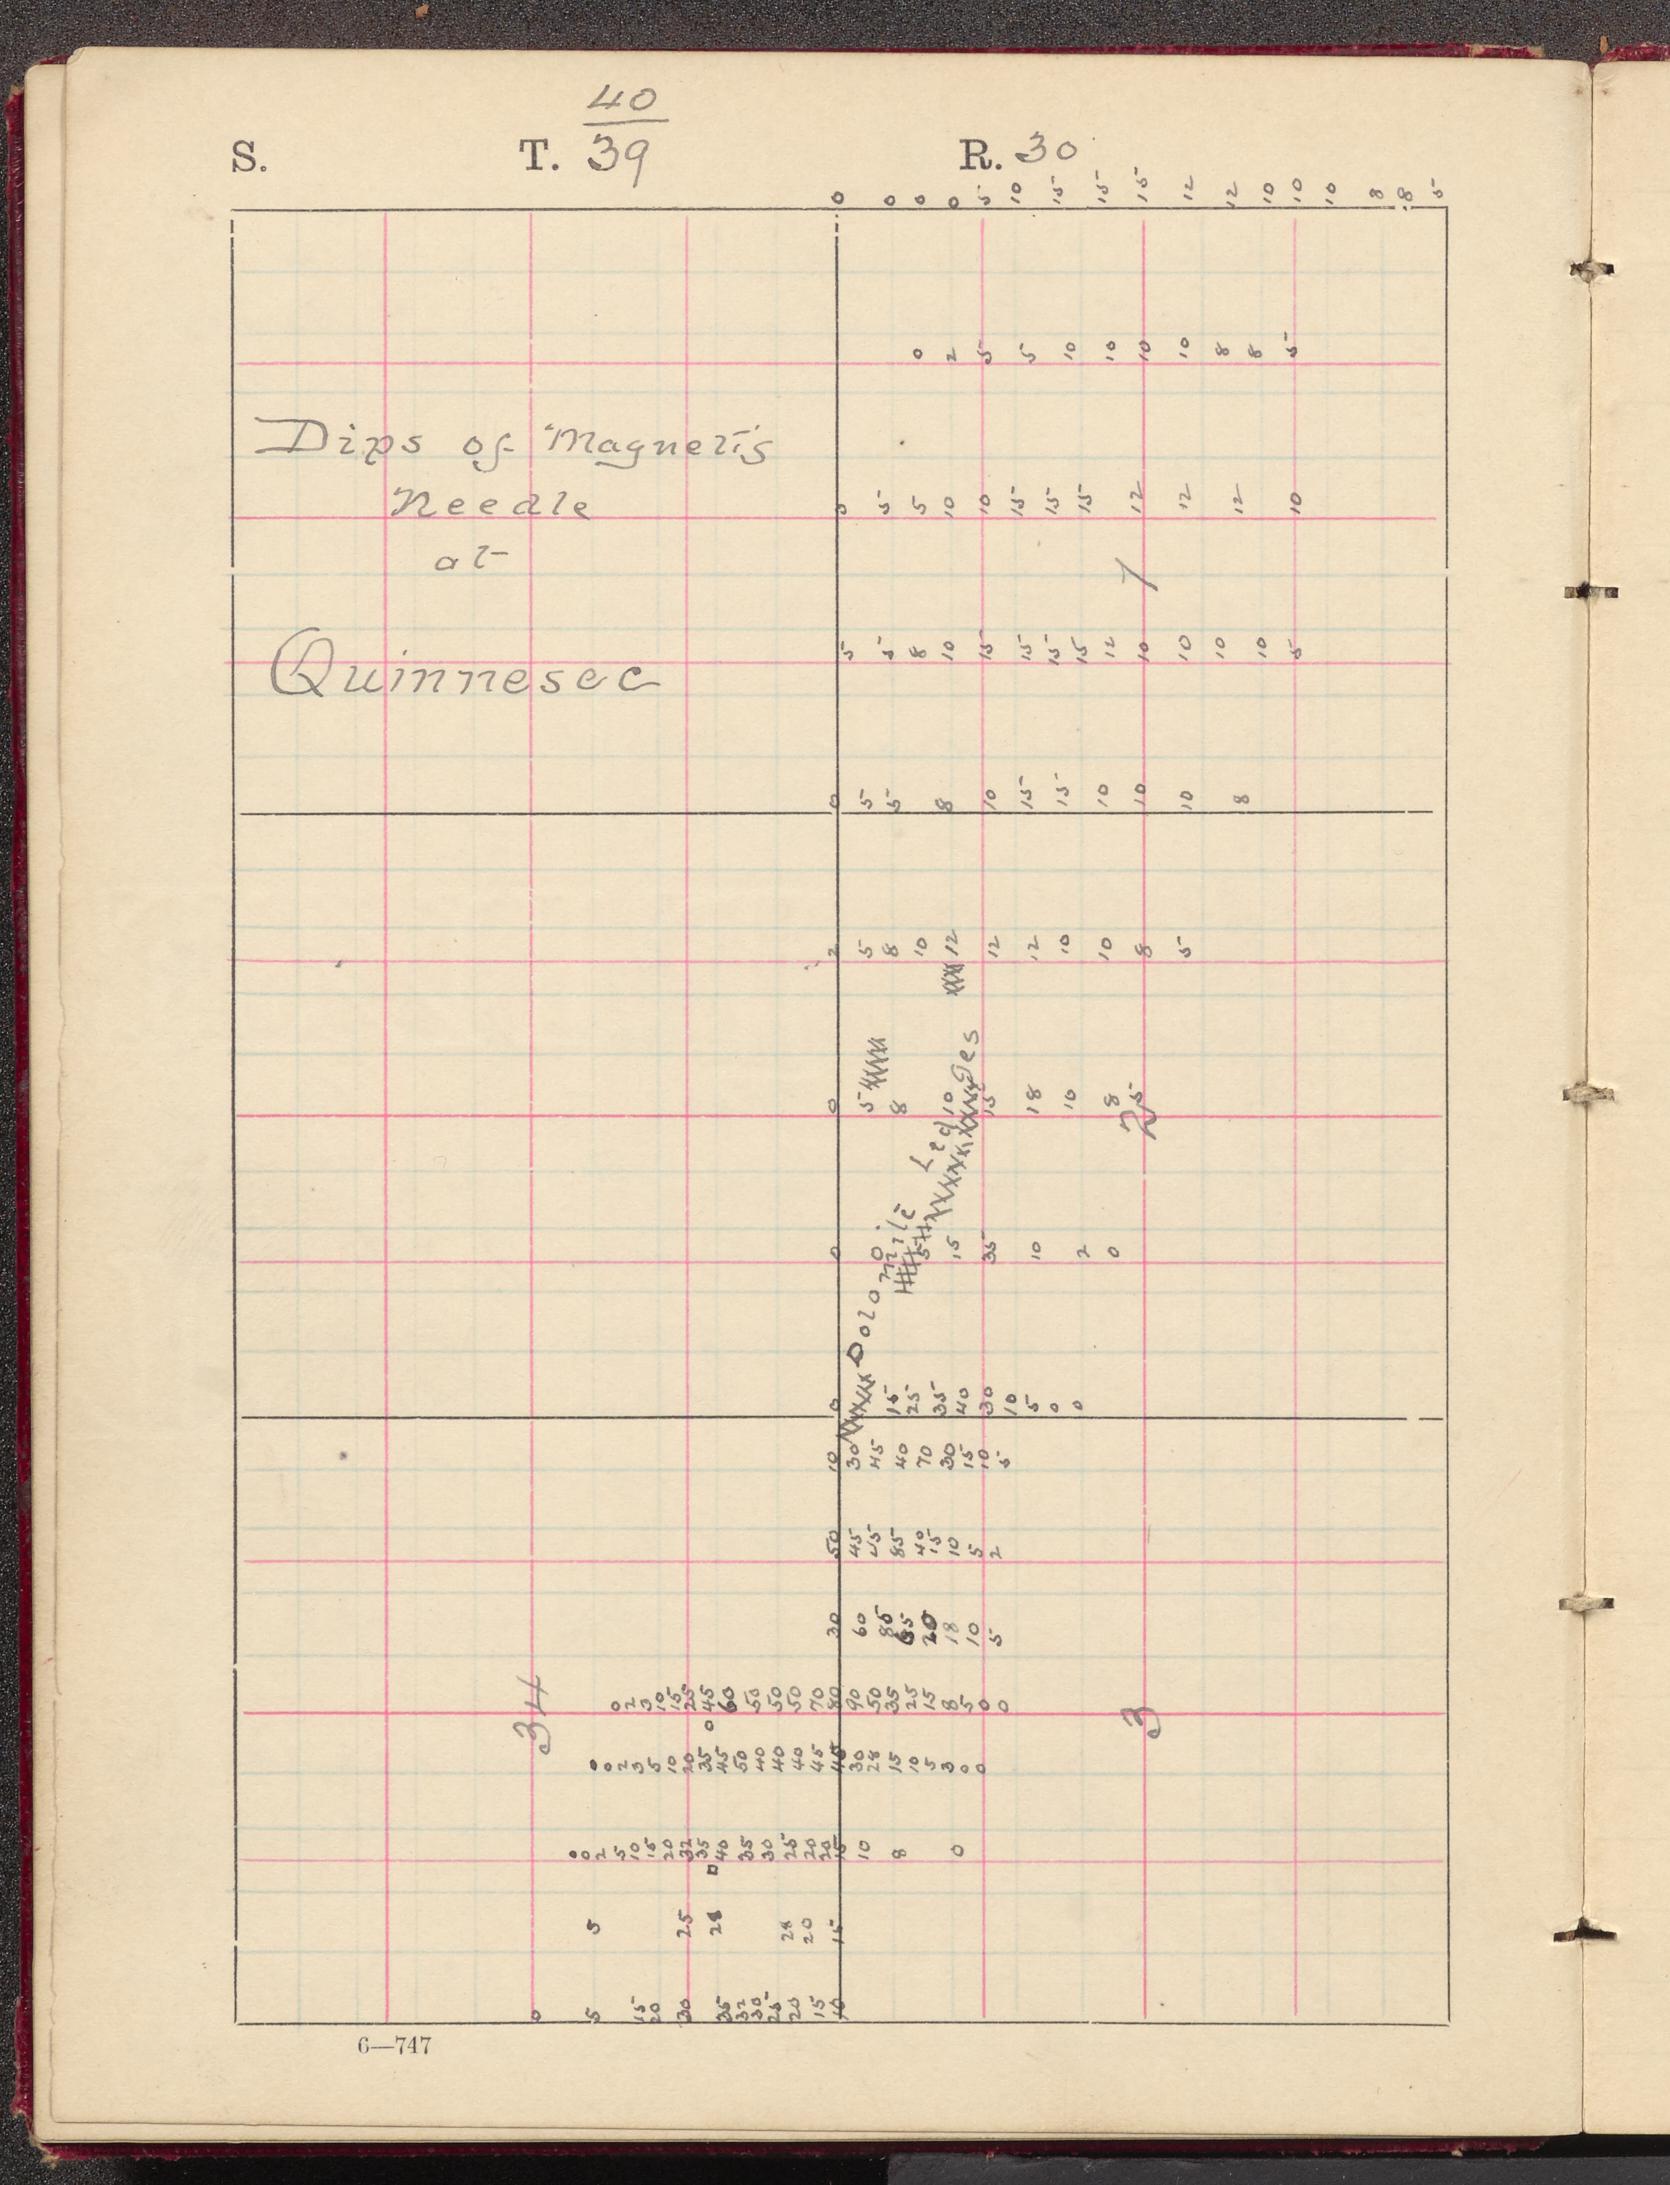 40
S. T. 39 R. 30
0 0 0 0 5 10 15 15 15 12 12 10 10 10 8 8 5
0 2 5 5 10 10 10 10 8 8 5
Dips of Magnetis
Needle
at
Quinnesec
5 5 10 10 15 15 15 12 12 12 10
5 5 8 10 15 15 15 15 12 10 10 10 10 5
0 5 5 8 10 15 15 10 10 10 8
2 5 8 10 12 12 12 10 10 8 5
0 5 8 10 15 18 10 8 5
2
Dolomite Ledges
0 0 5 15 35 10 2 0
0 15 25 35 40 30 10 5 0 0
10 30 45 40 70 30 15 10 5
50 45 45 85 40 15 10 5 2
30 60 85 65 20 18 10 5
34
0 2 3 10 15 25 45 60 50 50 50 70 80 90 50 35 25 15 8 5 0 0
3
0
0 0 2 3 5 10 20 35 45 50 40 40 40 45 45 30 28 15 10 5 3 0 0
0 0 2 5 10 15 20 32 35 40 35 30 25 20 20 15 10 8 0
5 25 28 28 20 15
0 5 15 20 30 35 32 30 25 20 15 10
6—747